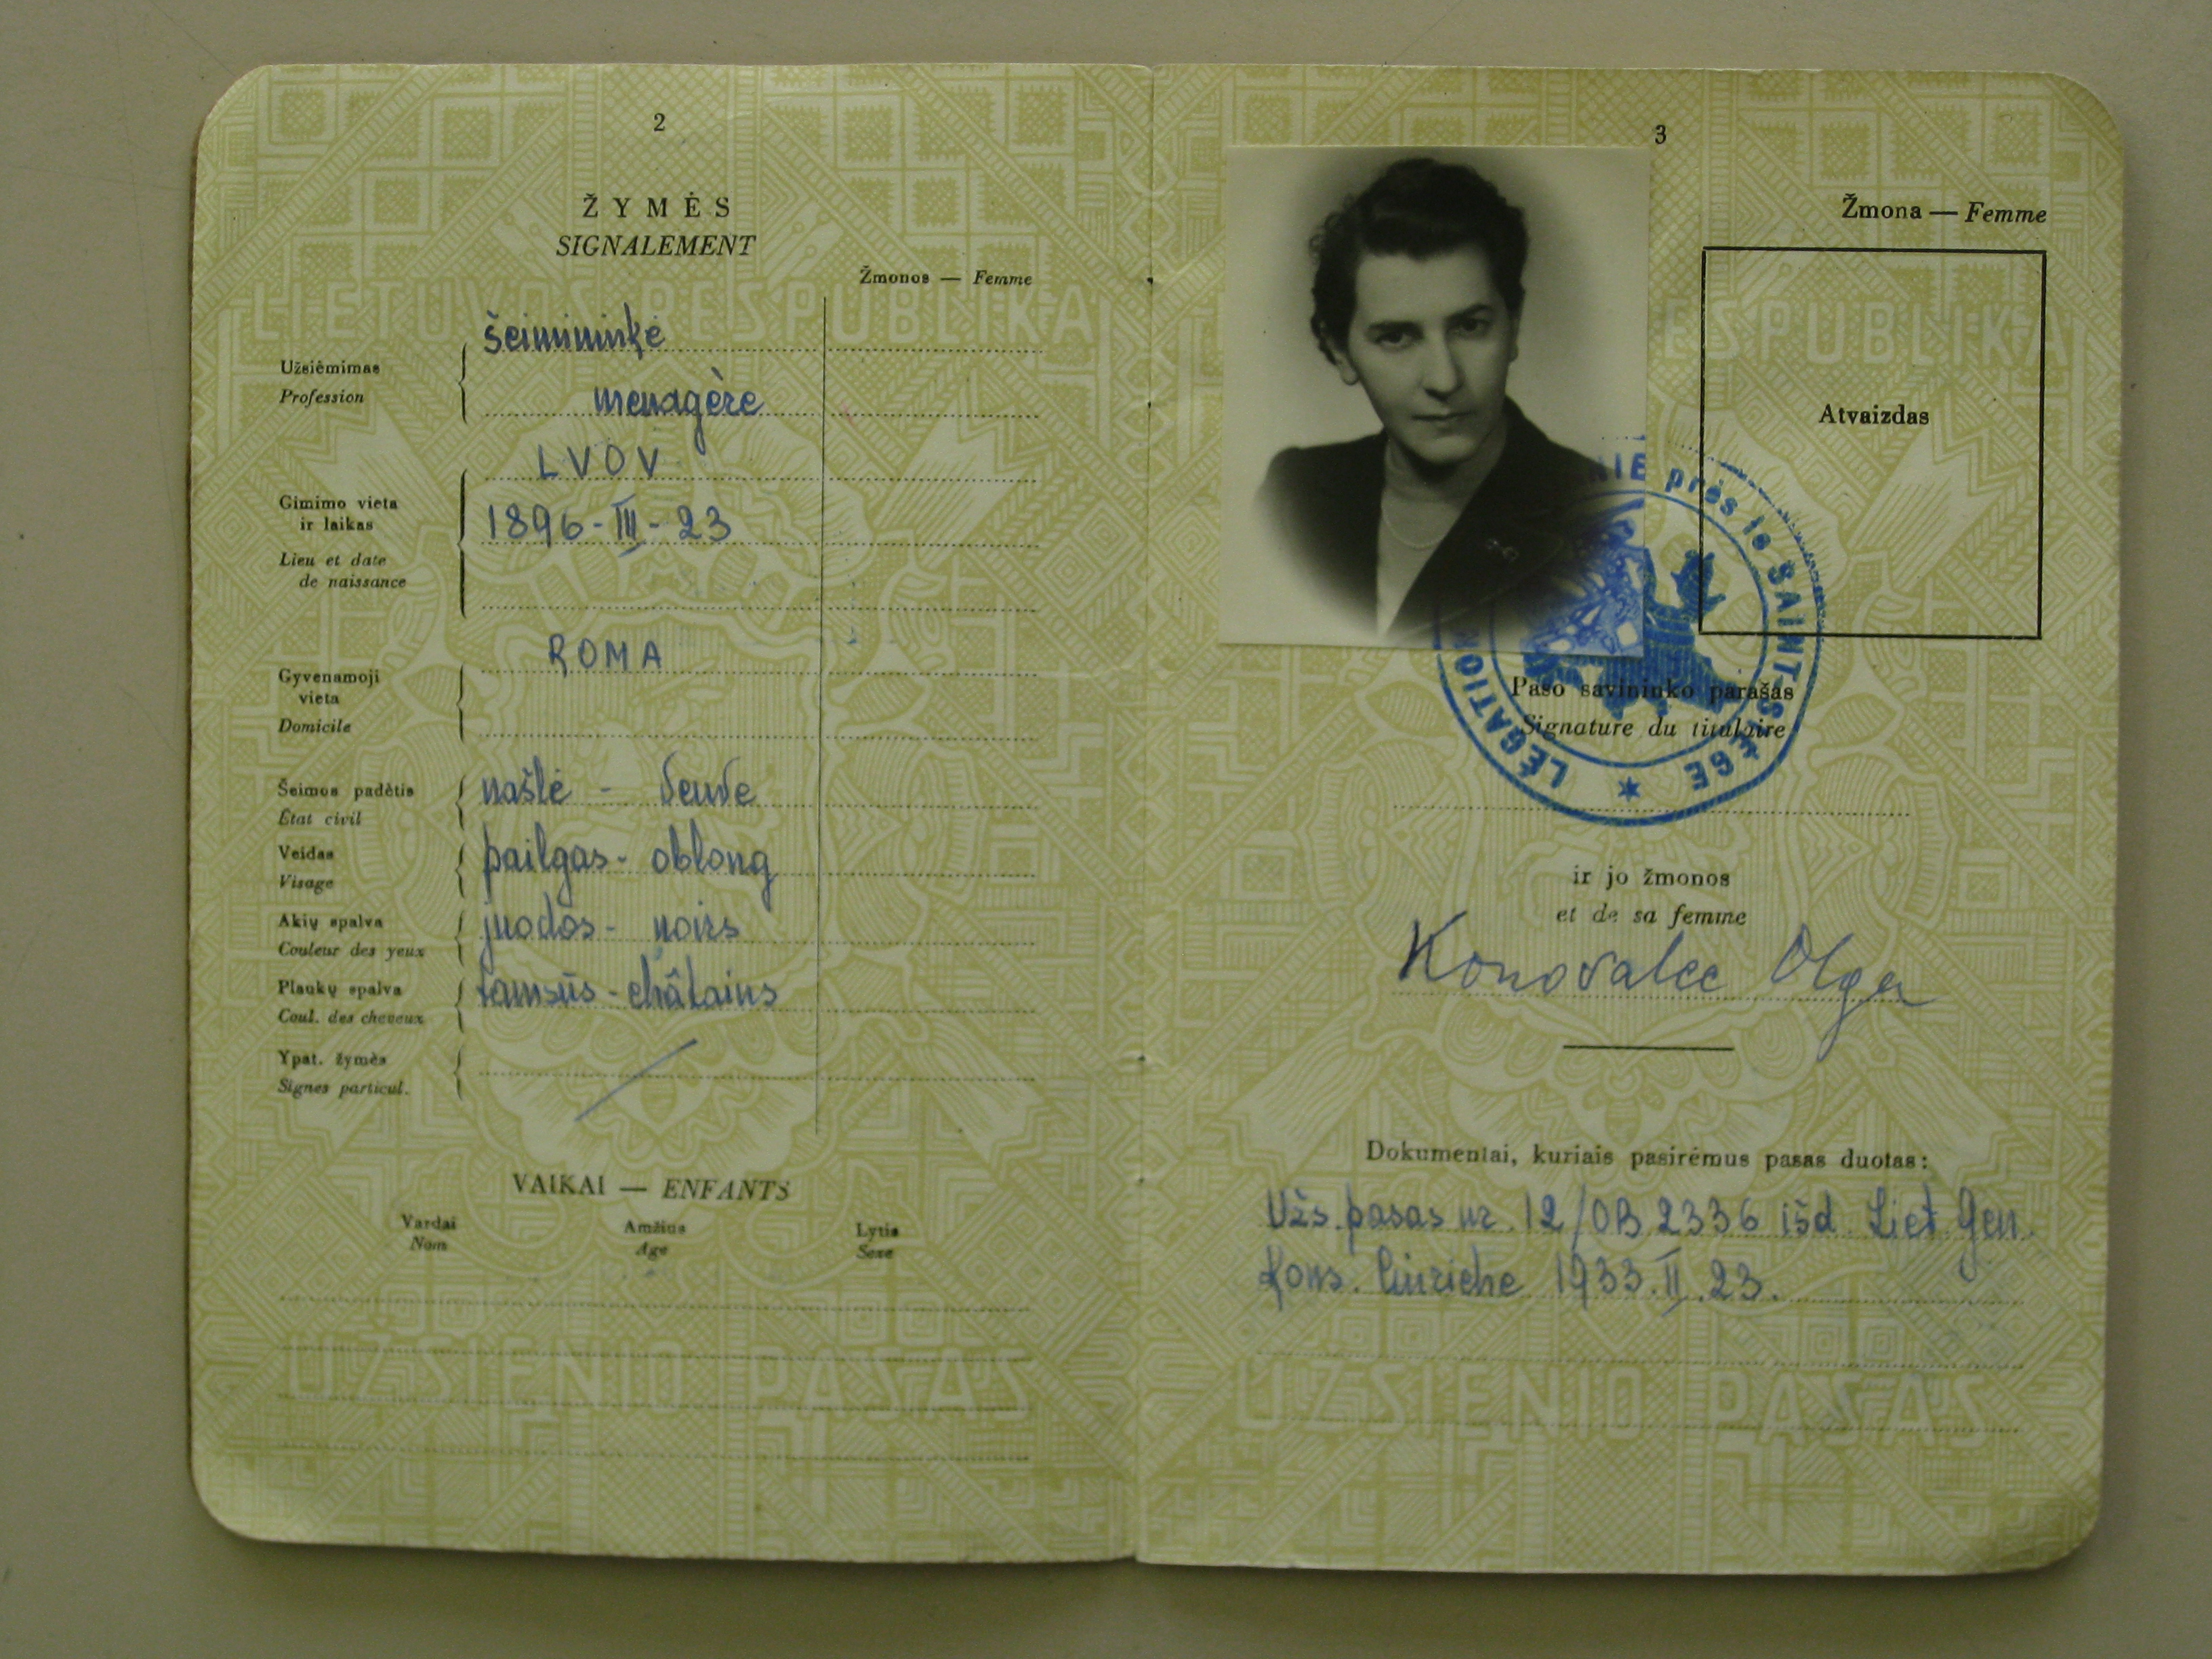 2
ŽYMĖS
SIGNALEMENT
Žmonos — Femme
LIETUVOS RESPUBLIKA
Užsiėmimas
Profession
šeimininkė
menagère
Gimimo vieta
ir laikas
Lieu et date
de naissance
LVOV
1896-III-23
Gyvenamoji
vieta
Domicile
ROMA
Šeimos padėtis
État civil
našlė - veuve
Veidas
Visage
pailgas - oblong
Akių spalva
Couleur des yeux
juodos - noirs
Plaukų spalva
Coul. des cheveux
tamsūs - châtains
Ypat. žymės
Signes particul.
VAIKAI — ENFANTS
Vardai
Nom
Amžius
Age
Lytis
Sexe
UŽSIENIO PASAS
3
Žmona — Femme
ESPUBLIKA
Atvaizdas
LÉGATION NIE près le SAINT-SIÈGE
Paso savininko parašas
Signature du titulaire
ir jo žmonos
et de sa femme
Konovalec Olga
Dokumentai, kuriais pasirėmus pasas duotas:
Užs. pasas nr. 12/OB 2336 išd. Liet. Gen.
Kons. Ciuriche 1933.II.23.
UŽSIENIO PASAS